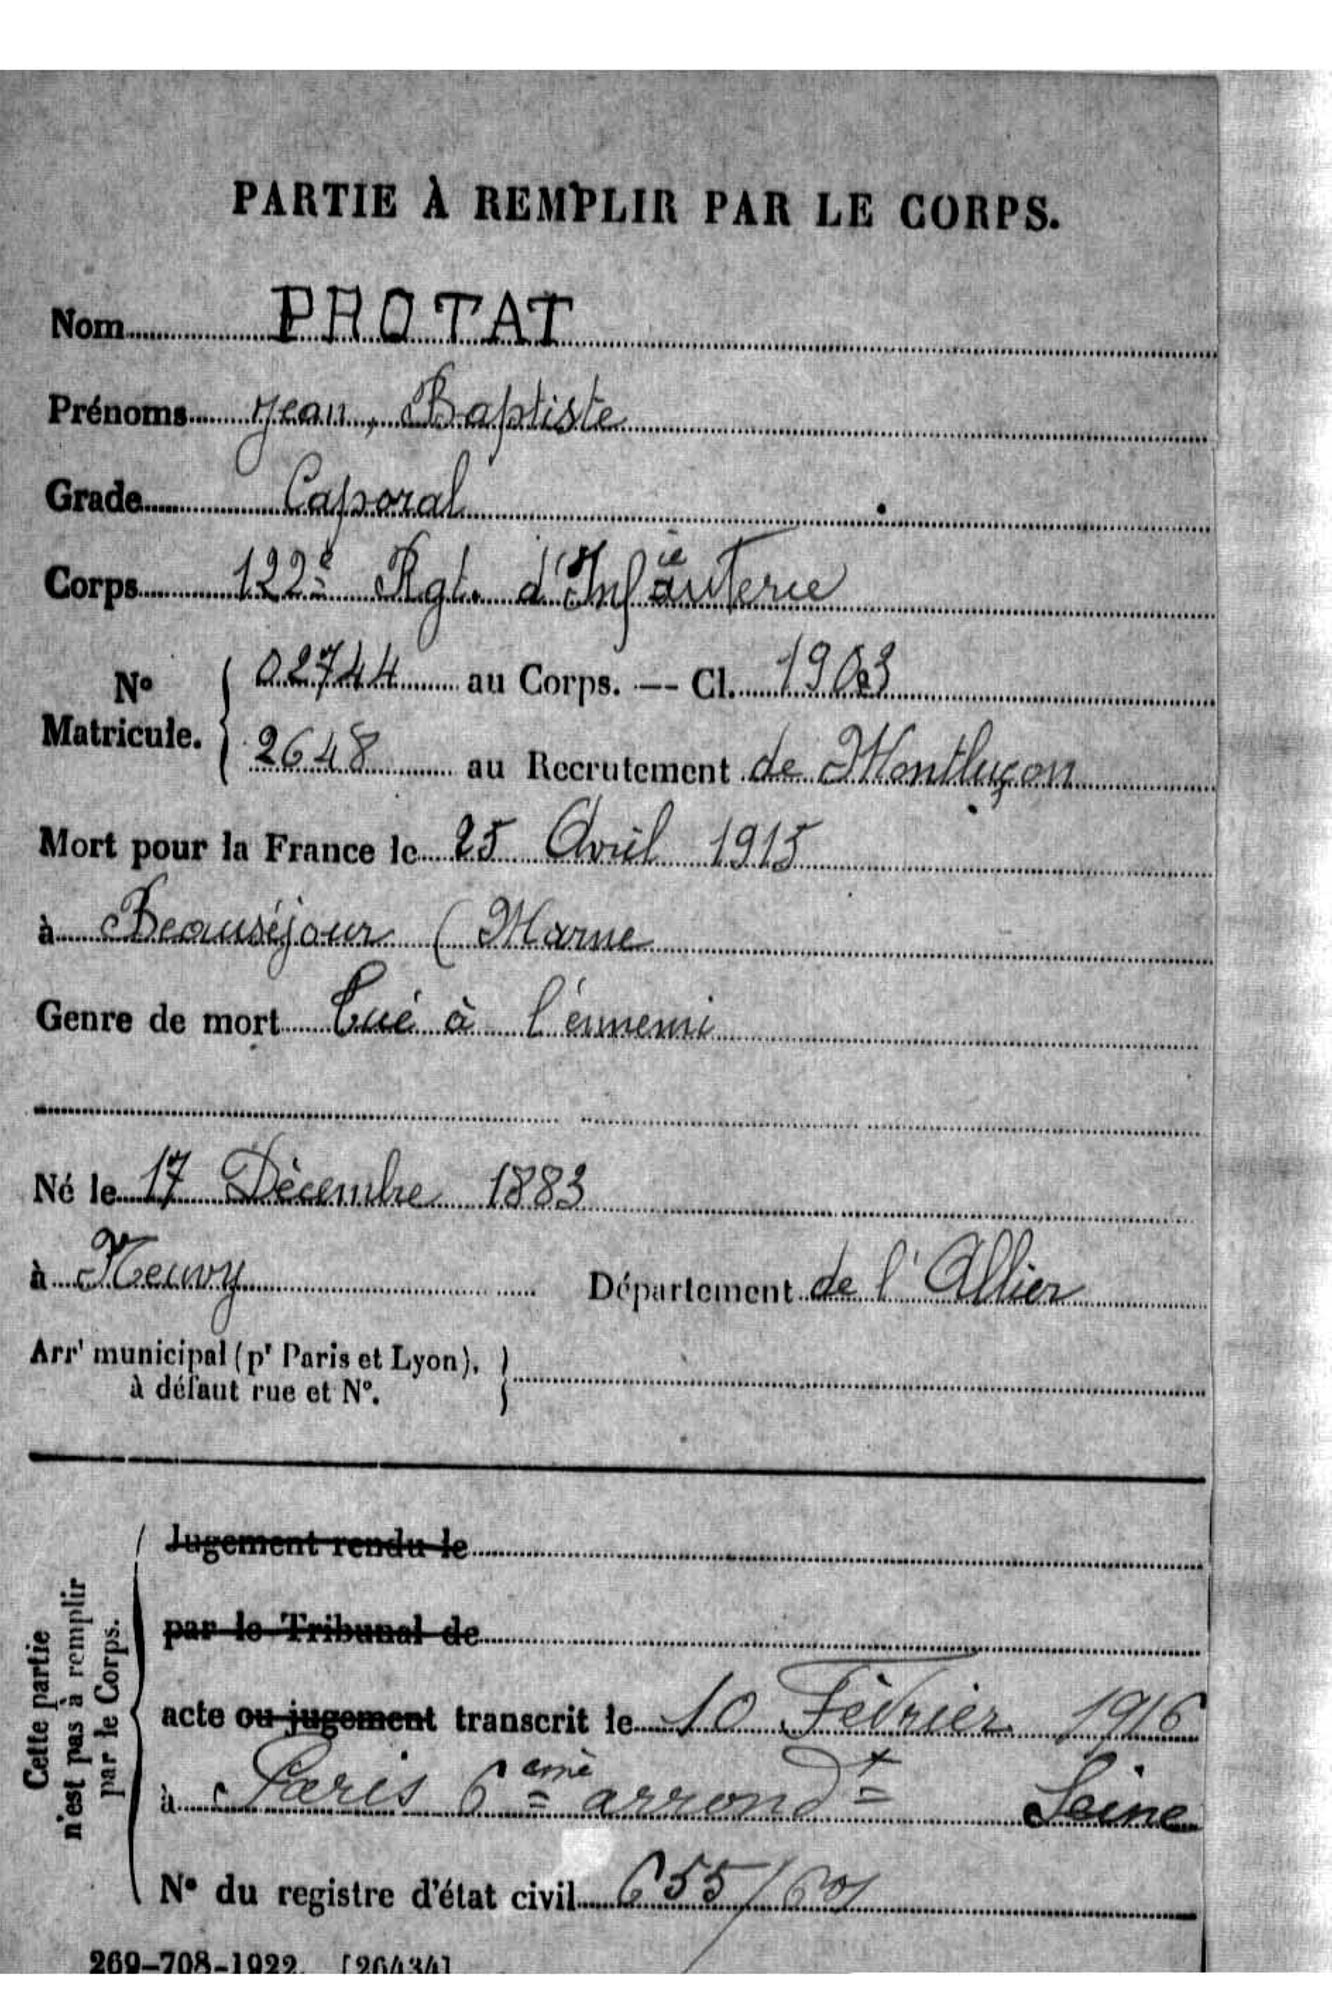 PARTIE À REMPLIR PAR LE CORPS.
Nom PROTAT
Prénoms Jean, Baptiste
Grade Caporal
Corps 122e Rgt. d'Infanterie
No Matricule. 02744 au Corps. — Cl. 1903
2648 au Recrutement de Montluçon
Mort pour la France le 25 Avril 1915
à Beauséjour (Marne
Genre de mort Tué à l'ennemi
Né le 17 Décembre 1883
à Neuvy Département de l'Allier
Arrt municipal (pr Paris et Lyon),
à défaut rue et No.
Cette partie
n'est pas à remplir
par le Corps.
Jugement rendu le
par le Tribunal de
acte ou jugement transcrit le 10 Février 1916
à Paris 6eme arrondt Seine
No du registre d'état civil 655/601
269-708-1922. [26434]